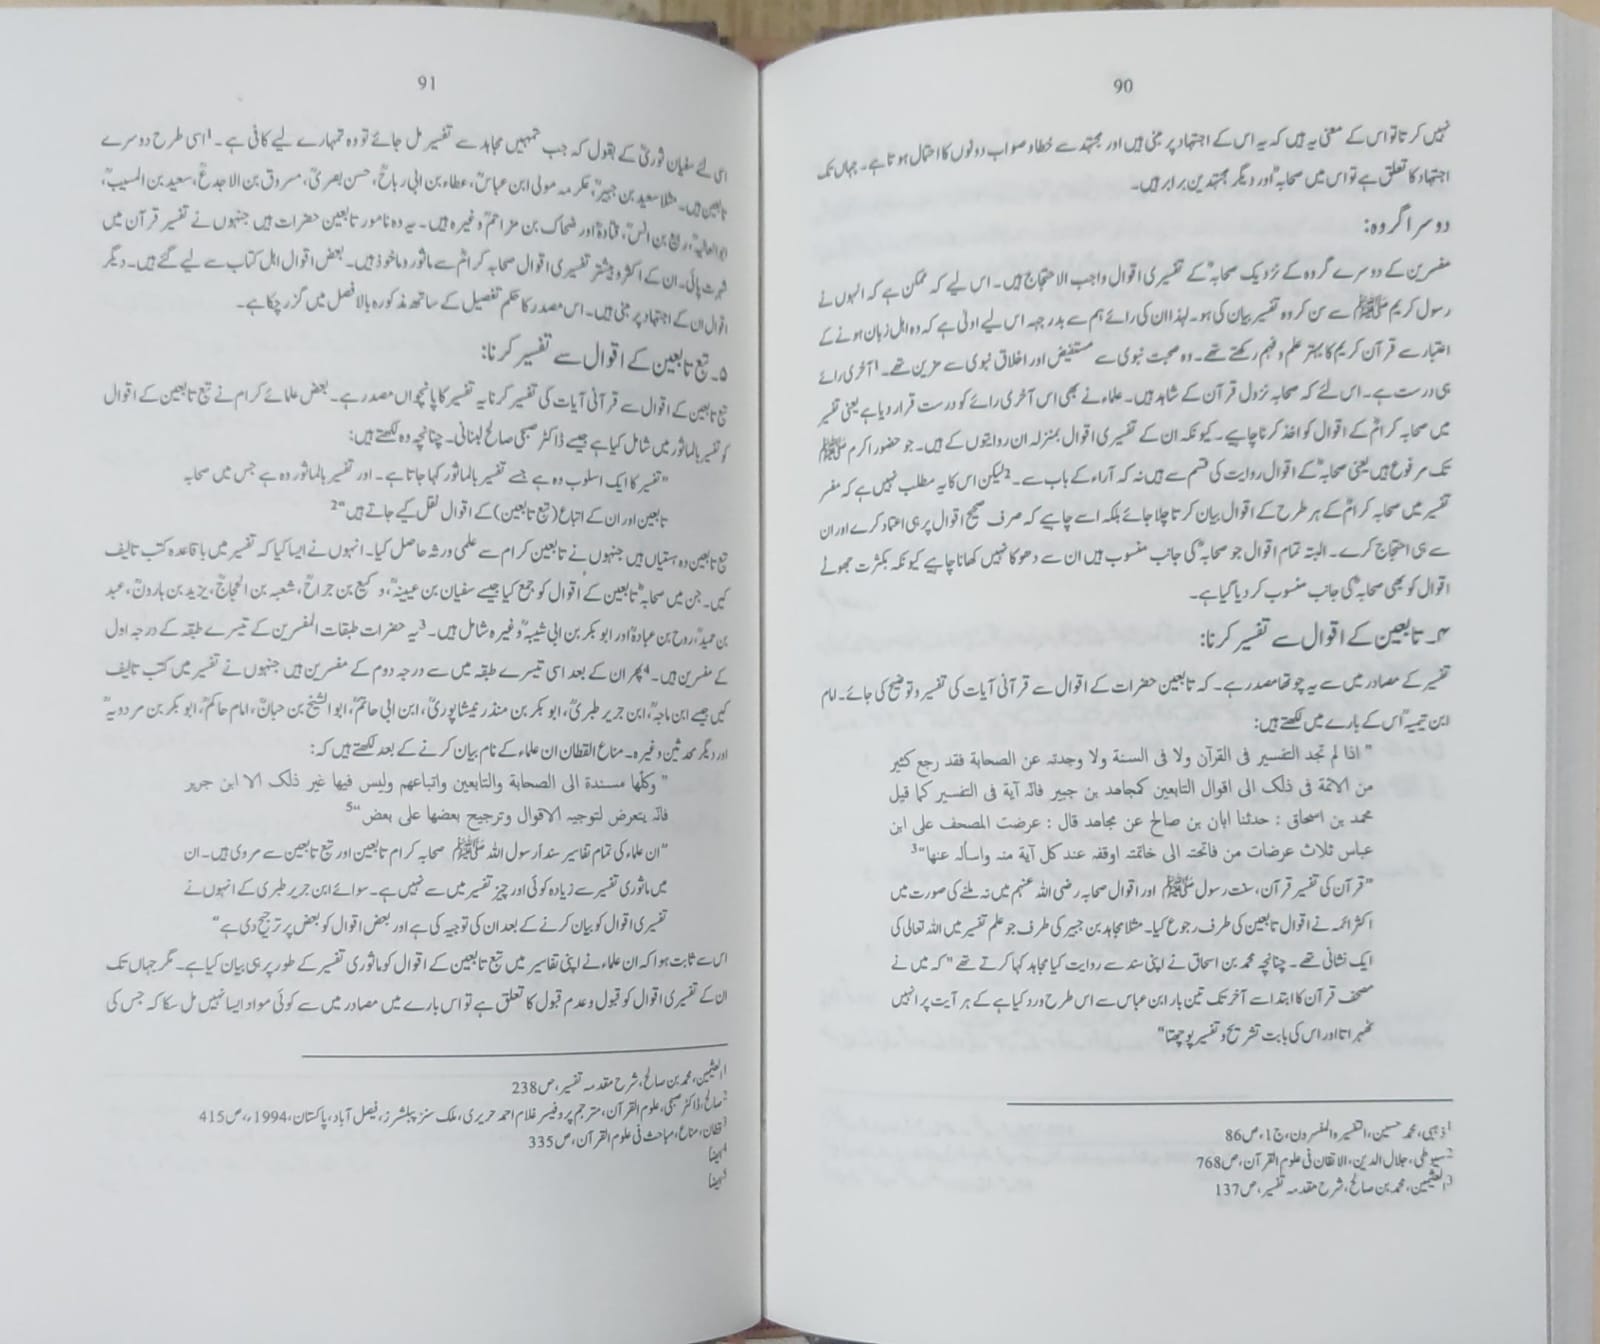 90
نہیں کرتا تو اس کے معنی یہ ہیں کہ یہ اس کے اجتہاد پر مبنی ہیں اور مجتہد سے خطا و صواب دونوں کا احتمال ہوتا ہے۔ جہاں تک
اجتہاد کا تعلق ہے تو اس میں صحابہؓ اور دیگر مجتہدین برابر ہیں۔
دوسرا گروہ:
مفسرین کے دوسرے گروہ کے نزدیک صحابہؓ کے تفسیری اقوال واجب الاحتجاج ہیں۔ اس لیے کہ ممکن ہے کہ انہوں نے
رسول کریم ﷺ سے سن کر وہ تفسیر بیان کی ہو۔ لہذا ان کی رائے ہم سے بدرجہہ اس لیے اولیٰ ہے کہ وہ اہل زبان ہونے کے
اعتبار سے قرآن کریم کا بہتر علم و فہم رکھتے تھے۔ وہ صحبت نبوی سے مستفیض اور اخلاق نبوی سے مزین تھے۔1 آخری رائے
ہی درست ہے۔ اس لئے کہ صحابہ نزول قرآن کے شاہد ہیں۔ علماء نے بھی اس آخری رائے کو درست قرار دیا ہے یعنی تفسیر
میں صحابہ کرامؓ کے اقوال کو اخذ کرنا چاہیے۔ کیونکہ ان کے تفسیری اقوال بمنزلہ ان روایتوں کے ہیں۔ جو حضور اکرم ﷺ
تک مرفوع ہیں یعنی صحابہؓ کے اقوال روایت کی قسم سے ہیں نہ کہ آراء کے باب سے۔2 لیکن اس کا یہ مطلب نہیں ہے کہ مفسر
تفسیر میں صحابہ کرامؓ کے ہر طرح کے اقوال بیان کرتا چلا جائے بلکہ اسے چاہیے کہ صرف صحیح اقوال پر ہی اعتماد کرے اور ان
سے ہی احتجاج کرے۔ البتہ تمام اقوال جو صحابہؓ کی جانب منسوب ہیں ان سے دھوکا نہیں کھانا چاہیے کیونکہ بکثرت جھوٹے
اقوال کو بھی صحابہؓ کی جانب منسوب کر دیا گیا ہے۔
۴۔ تابعین کے اقوال سے تفسیر کرنا:
تفسیر کے مصادر میں سے یہ چوتھا مصدر ہے۔ کہ تابعین حضرات کے اقوال سے قرآنی آیات کی تفسیر و توضیح کی جائے۔ امام
ابن تیمیہؒ اس کے بارے میں لکھتے ہیں:
" اذا لم تجد التفسير فی القرآن ولا فی السنة ولا وجدته عن الصحابة فقد رجع كثير
من الائمة فی ذلک الی اقوال التابعين كمجاهد بن جبير فانّہ آیة فی التفسير كما قيل
محمد بن اسحاق : حدثنا ابان بن صالح عن مجاهد قال : عرضت المصحف علی ابن
عباس ثلاث عرضات من فاتحته الی خاتمته اوقفه عند كل آیة منه واسأله عنها"3
"قرآن کی تفسیر قرآن، سنت رسول ﷺ اور اقوال صحابہ رضی اللہ عنہم میں نہ ملنے کی صورت میں
اکثر ائمہ نے اقوال تابعین کی طرف رجوع کیا۔ مثلاً مجاہد بن جبیر کی طرف جو علم تفسیر میں اللہ تعالی کی
ایک نشانی تھے۔ چنانچہ محمد بن اسحاق نے اپنی سند سے روایت کیا مجاہد کہا کرتے تھے "کہ میں نے
مصحف قرآن کا ابتدا سے آخر تک تین بار ابن عباس سے اس طرح ورد کیا ہے کے ہر آیت پر انہیں
ٹھہراتا اور اس کی بابت تشریح و تفسیر پوچھتا"
1 ذہبی، محمد حسین، التفسیر والمفسرون، ج1، ص86
2 سیوطی، جلال الدین، الاتقان فی علوم القرآن، ص768
3 العثیمین، محمد بن صالح، شرح مقدمہ تفسیر، ص137
91
اسی لئے سفیان ثوریؒ کے بقول کہ جب تمہیں مجاہد سے تفسیر مل جائے تو وہ تمہارے لیے کافی ہے۔1 اسی طرح دوسرے
تابعین ہیں۔ مثلا سعید بن جبیرؒ، عکرمہ مولی ابن عباسؓ، عطاء بن ابی رباحؒ، حسن بصریؒ، مسروق بن الاجدعؒ، سعید بن المسیبؒ،
ابوالعالیہؒ، ربیع بن انسؒ، قتادہؒ اور ضحاک بن مزاحمؒ وغیرہ ہیں۔ یہ وہ نامور تابعین حضرات ہیں جنہوں نے تفسیر قرآن میں
شہرت پائی۔ ان کے اکثر و بیشتر تفسیری اقوال صحابہ کرامؓ سے ماثور و ماخوذ ہیں۔ بعض اقوال اہل کتاب سے لیے گئے ہیں۔ دیگر
اقوال ان کے اجتہاد پر مبنی ہیں۔ اس مصدر کا حکم تفصیل کے ساتھ مذکورہ بالا فصل میں گزر چکا ہے۔
۵۔ تبع تابعین کے اقوال سے تفسیر کرنا:
تبع تابعین کے اقوال سے قرآنی آیات کی تفسیر کرنا یہ تفسیر کا پانچواں مصدر ہے۔ بعض علمائے کرام نے تبع تابعین کے اقوال
کو تفسیر بالماثور میں شامل کیا ہے جیسے ڈاکٹر صبحی صالح لبنانی۔ چنانچہ وہ لکھتے ہیں:
"تفسیر کا ایک اسلوب وہ ہے جسے تفسیر بالماثور کہا جاتا ہے۔ اور تفسیر بالماثور وہ ہے جس میں صحابہ
تابعین اور ان کے اتباع (تبع تابعین) کے اقوال نقل کیے جاتے ہیں"2
تبع تابعین وہ ہستیاں ہیں جنہوں نے تابعین کرام سے علمی ورثہ حاصل کیا۔ انہوں نے ایسا کیا کہ تفسیر میں باقاعدہ کتب تالیف
کیں۔ جن میں صحابہؓ تابعین کے اقوال کو جمع کیا جیسے سفیان بن عیینہؒ، وکیع بن جراحؒ، شعبہ بن الحجاجؒ، یزید بن ہارونؒ، عبد
بن حمیدؒ، روح بن عبادہؒ اور ابو بکر بن ابی شیبہؒ وغیرہ شامل ہیں۔3 یہ حضرات طبقات المفسرین کے تیسرے طبقہ کے درجہ اول
کے مفسرین ہیں۔4 پھر ان کے بعد اسی تیسرے طبقہ میں سے درجہ دوم کے مفسرین ہیں جنہوں نے تفسیر میں کتب تالیف
کیں جیسے ابن ماجہؒ، ابن جریر طبریؒ، ابو بکر بن منذر نیشاپوریؒ، ابن ابی حاتمؒ، ابو الشیخ بن حبانؒ، امام حاکمؒ، ابو بکر بن مردویہؒ
اور دیگر محدثین وغیرہ۔ مناع القطان ان علماء کے نام بیان کرنے کے بعد لکھتے ہیں کہ:
" وكلّها مسندة الی الصحابة والتابعين واتباعهم وليس فيها غير ذلک الا ابن جرير
فانّہ يتعرض لتوجيه الاقوال وترجيح بعضها علی بعض"5
"ان علماء کی تمام تفاسیر سنداً رسول اللہ ﷺ صحابہ کرام تابعین اور تبع تابعین سے مروی ہیں۔ ان
میں ماثوری تفسیر سے زیادہ کوئی اور چیز تفسیر میں سے نہیں ہے۔ سوائے ابن جریر طبری کے انہوں نے
تفسیری اقوال کو بیان کرنے کے بعد ان کی توجیہ کی ہے اور بعض اقوال کو بعض پر ترجیح دی ہے"
اس سے ثابت ہوا کہ ان علماء نے اپنی تفاسیر میں تبع تابعین کے اقوال کو ماثوری تفسیر کے طور پر ہی بیان کیا ہے۔ مگر جہاں تک
ان کے تفسیری اقوال کو قبول و عدم قبول کا تعلق ہے تو اس بارے میں مصادر میں سے کوئی مواد ایسا نہیں مل سکا کہ جس کی
1 العثیمین، محمد بن صالح، شرح مقدمہ تفسیر، ص238
2 صالح، ڈاکٹر صبحی، علوم القرآن، مترجم پروفیسر غلام احمد حریری، ملک سنز پبلشرز، فیصل آباد، پاکستان، 1994ء، ص415
3 قطان، مناع، مباحث فی علوم القرآن، ص335
4 ایضاً
5 ایضاً